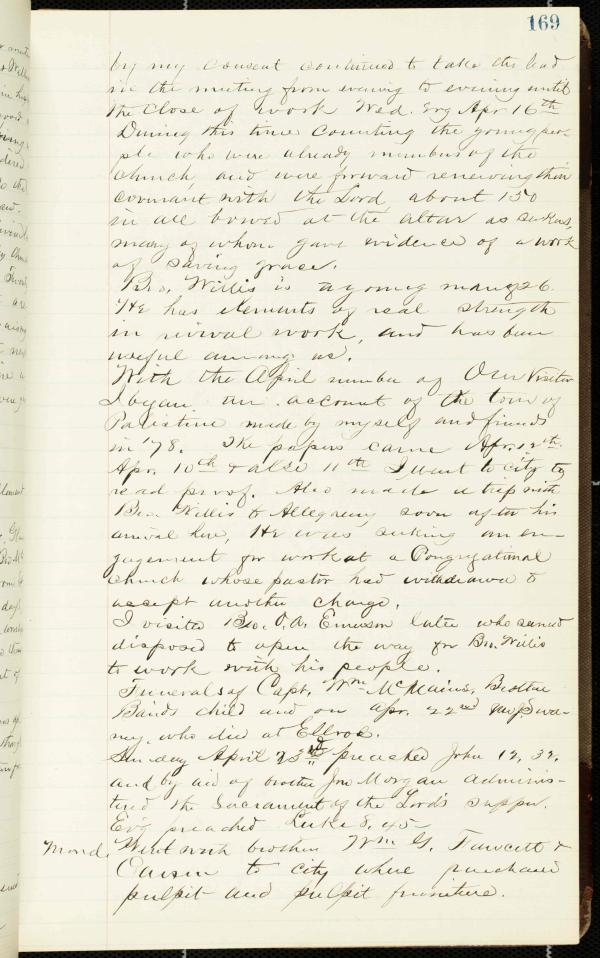 169
by my consent continued to take the lead
in the meeting from evening to evening until
the close of work Wed. Evg Apr 16th
During this time counting the young peo-
ple who were already members of the
church, and were forward renewing their
covenant with the Lord, about 150
in all bowed at the altar as seekers,
many of whom gave evidence of a work
of saving grace.
Bro. Willis is a young man of 26.
He has elements of real strength
in revival work, and has been
useful among us.
With the April number of Our Visitor
I began an account of the tour of
Palestine made by myself and friends
in '78. The papers came Apr. 12th.
Apr. 10th & also 11th I went to city to
read proof. Also made a trip with
Bro. Willis to Allegheny soon after his
arrival here, He was seeking an en-
gagement for work at a Congregational
church whose pastor had withdrawn to
accept another charge.
I visited Bro. O. A. Emerson later who seemed
disposed to open the way for Bro. Willis
to work with his people.
Funerals of Capt. Wm McMains, Brother
Bairds child and on Apr. 22nd Swa-
ney, who died at Ellrod.
Sunday April 23rd preached John 12, 32,
and by aid of brother Jno Morgan adminis-
tered the Sacrament of the Lord's supper.
Ev'g preached Luke 8, 45
Mond. Went with brothers Wm G. Fawcett &
to city where purchased
pulpit and pulpit furniture.